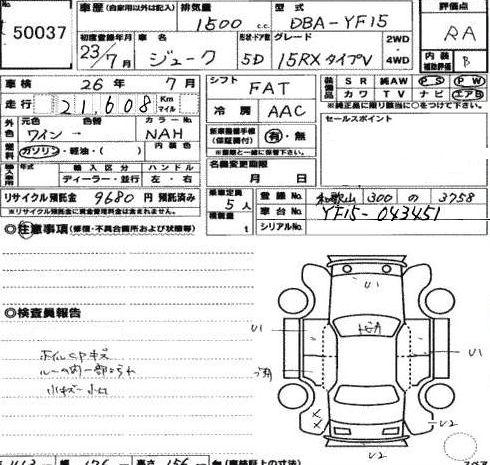 50037
車歴 (自家用以外は記入) 排気量 型式 評価点
1500 c.c. DBA-YF15 RA
初度登録年月 車名 形状・ドア数 グレード 2WD 内装
23/7 ジューク 5D 15RXタイプV 4WD 補助評価 B
車検 26年 7月 シフト FAT 装備品 SR 純AW PS PW
走行 21,608 Km マイル 冷房 AAC カワ TV ナビ エアB
※純正品に限り該当に○をつけて下さい。
外色 元色 色替 カラーNo. 新車整備手帳(保証書付) 有・無 セールスポイント
ワイン → NAH ※書類と一緒に保管下さい。
燃料 ガソリン・軽油・( ) 内装色 名義変更期限
輸入車用 年式 輸入区分 ハンドル 月 日
ディーラー・並行 左・右
リサイクル預託金 9680円 預託済み 乗車定員 5人 登録No. 和歌山 300 の 3758
※リサイクル預託金に資金管理料金は含まれません。 積載量 t 車台No. YF15-043451
シリアルNo.
◎注意事項 (修復・不具合箇所および状態等)
◎検査員報告
U1
U1
U1
ホイルCPキズ
小キズ 小凹
U2
U2